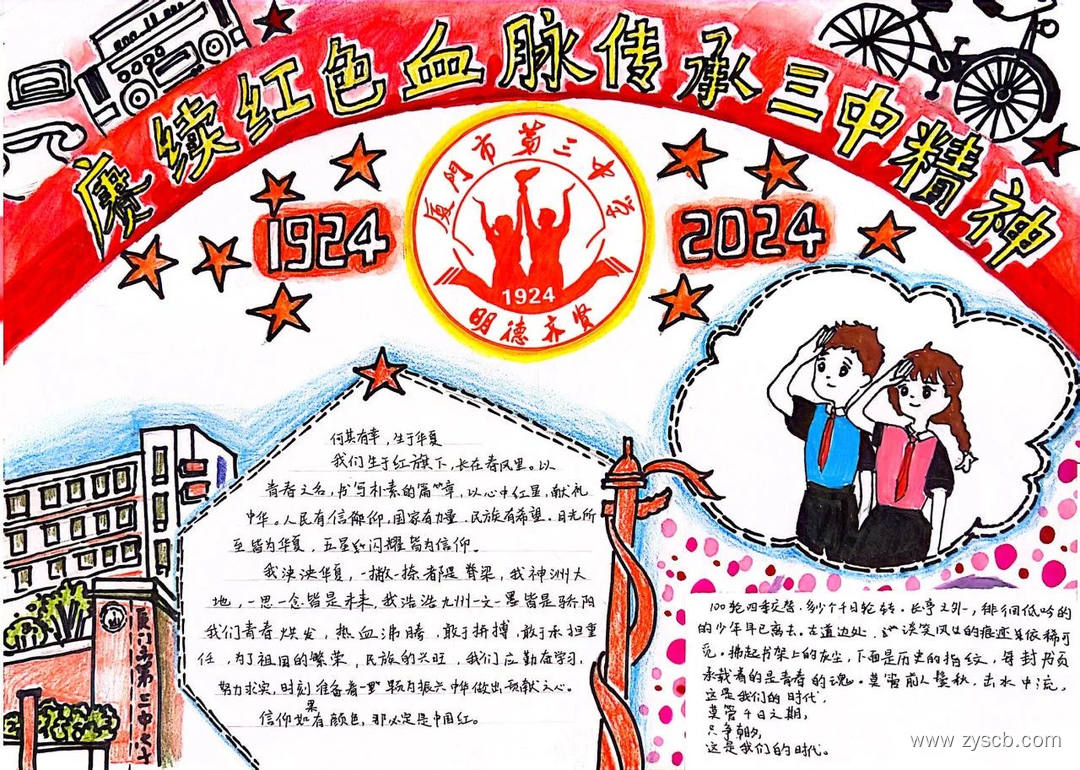 赓续红色血脉传承三中精神
厦门市第三中学
1924
2024
1924
明德亦贤
何其有幸，生于华夏
我们生于红旗下，长在春风里。以
青春之名，书写朴素的篇章，以心中红星，献礼
中华。人民有信仰，国家有力量，民族有希望。目光所
至皆为华夏，五星闪耀皆为信仰。
我泱泱华夏，一撇一捺都是脊梁，我神洲大
地，一思一念皆是未来，我浩浩九州一文一墨皆是骄阳
我们青春焕发，热血沸腾，敢于拼搏，敢于承担重
任，为了祖国的繁荣，民族的兴旺，我们应勤奋学习，
努力求实，时刻准备着 振兴中华做出贡献之心。
信仰如果有颜色，那必定是中国红。
厦门第三中
100轮四季交替，多少个千日轮转。长亭之外，徘徊低吟的
的少年早已离去。古道边处，谈笑风生的痕迹依稀可
见。拂起书架上的灰尘，下面是历史的指纹，每封书页
承载着的是青春的魂。莫 前人鬓秋，出水中流，
这是我们的时代，
莫管千日之期，
只争朝夕，
这是我们的时代。
www.zyscb.com